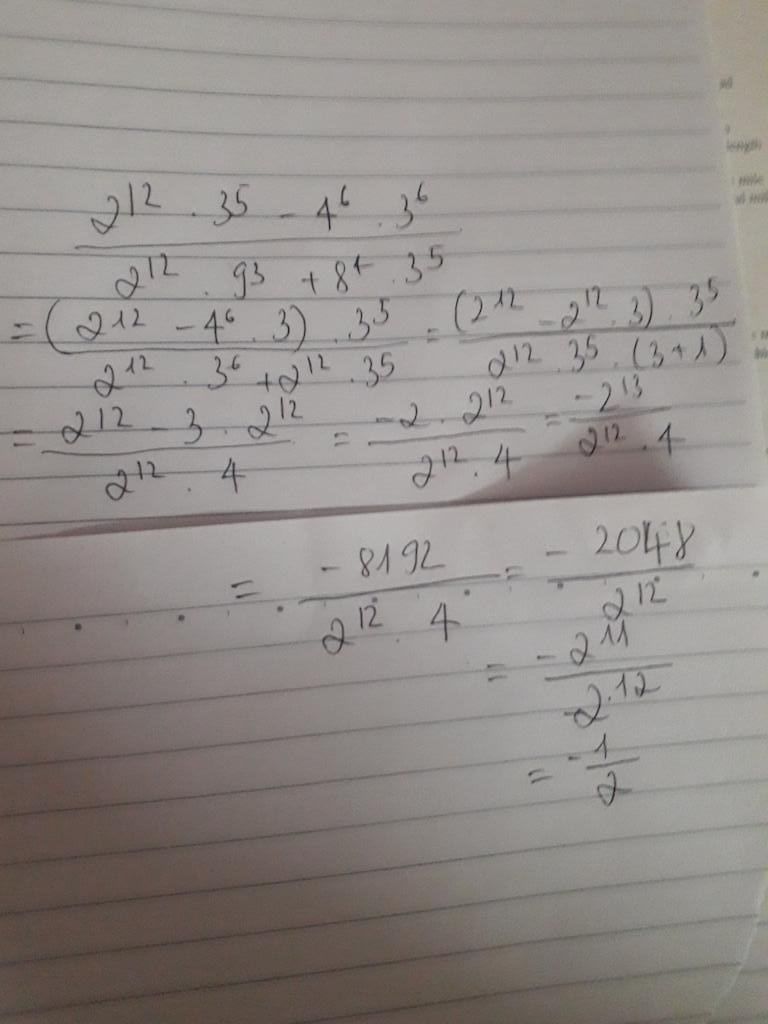 2¹² . 3⁵ - 4⁶ . 3⁶
2¹² . 9³ + 8⁴ . 3⁵
= (2¹² - 4⁶ . 3) . 3⁵ / 2¹² . 3⁶ + 2¹² . 3⁵ = (2¹² - 2¹² . 3) . 3⁵ / 2¹² . 3⁵ . (3 + 1)
= 2¹² - 3 . 2¹² / 2¹² . 4 = -2 . 2¹² / 2¹² . 4 = -2¹³ / 2¹² . 4
= -8192 / 2¹² . 4 = - 2048 / 2¹²
= -2¹¹ / 2¹²
= - 1 / 2
length